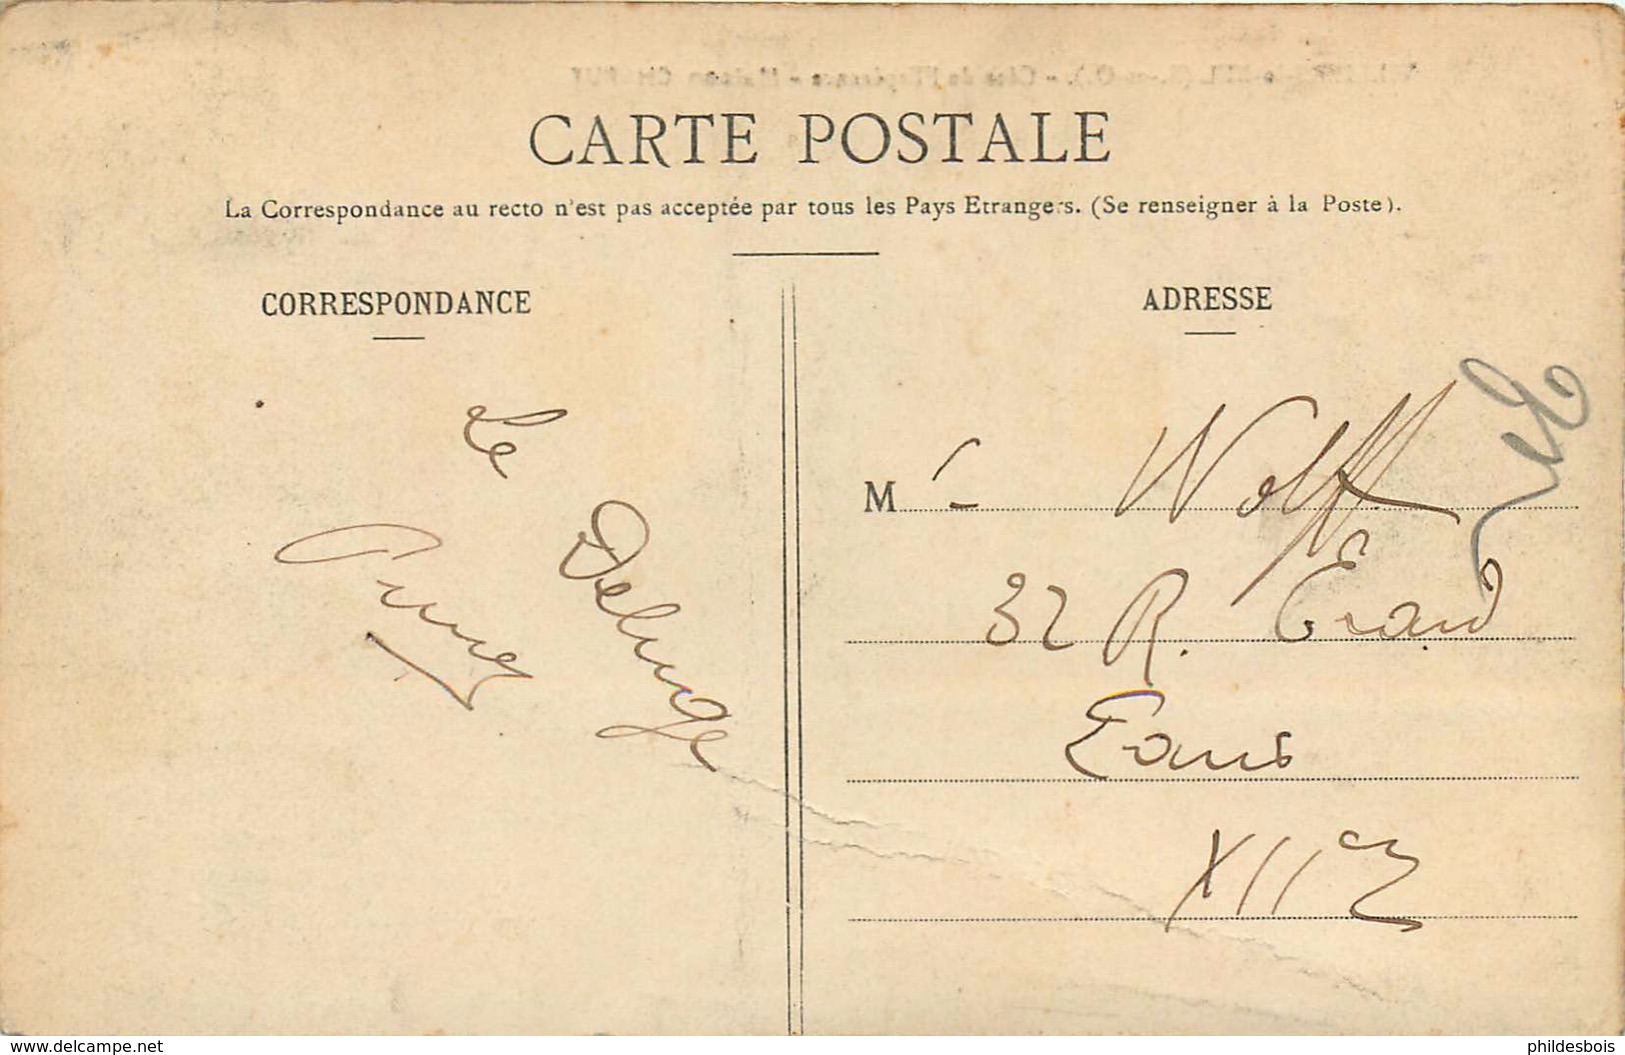 CARTE POSTALE
La Correspondance au recto n'est pas acceptée par tous les Pays Etrangers. (Se renseigner à la Poste).
CORRESPONDANCE
Le
Deluge
ADRESSE
M r Wolff
32 R. Erard
Paris
XII e
www.delcampe.net
phildesbois